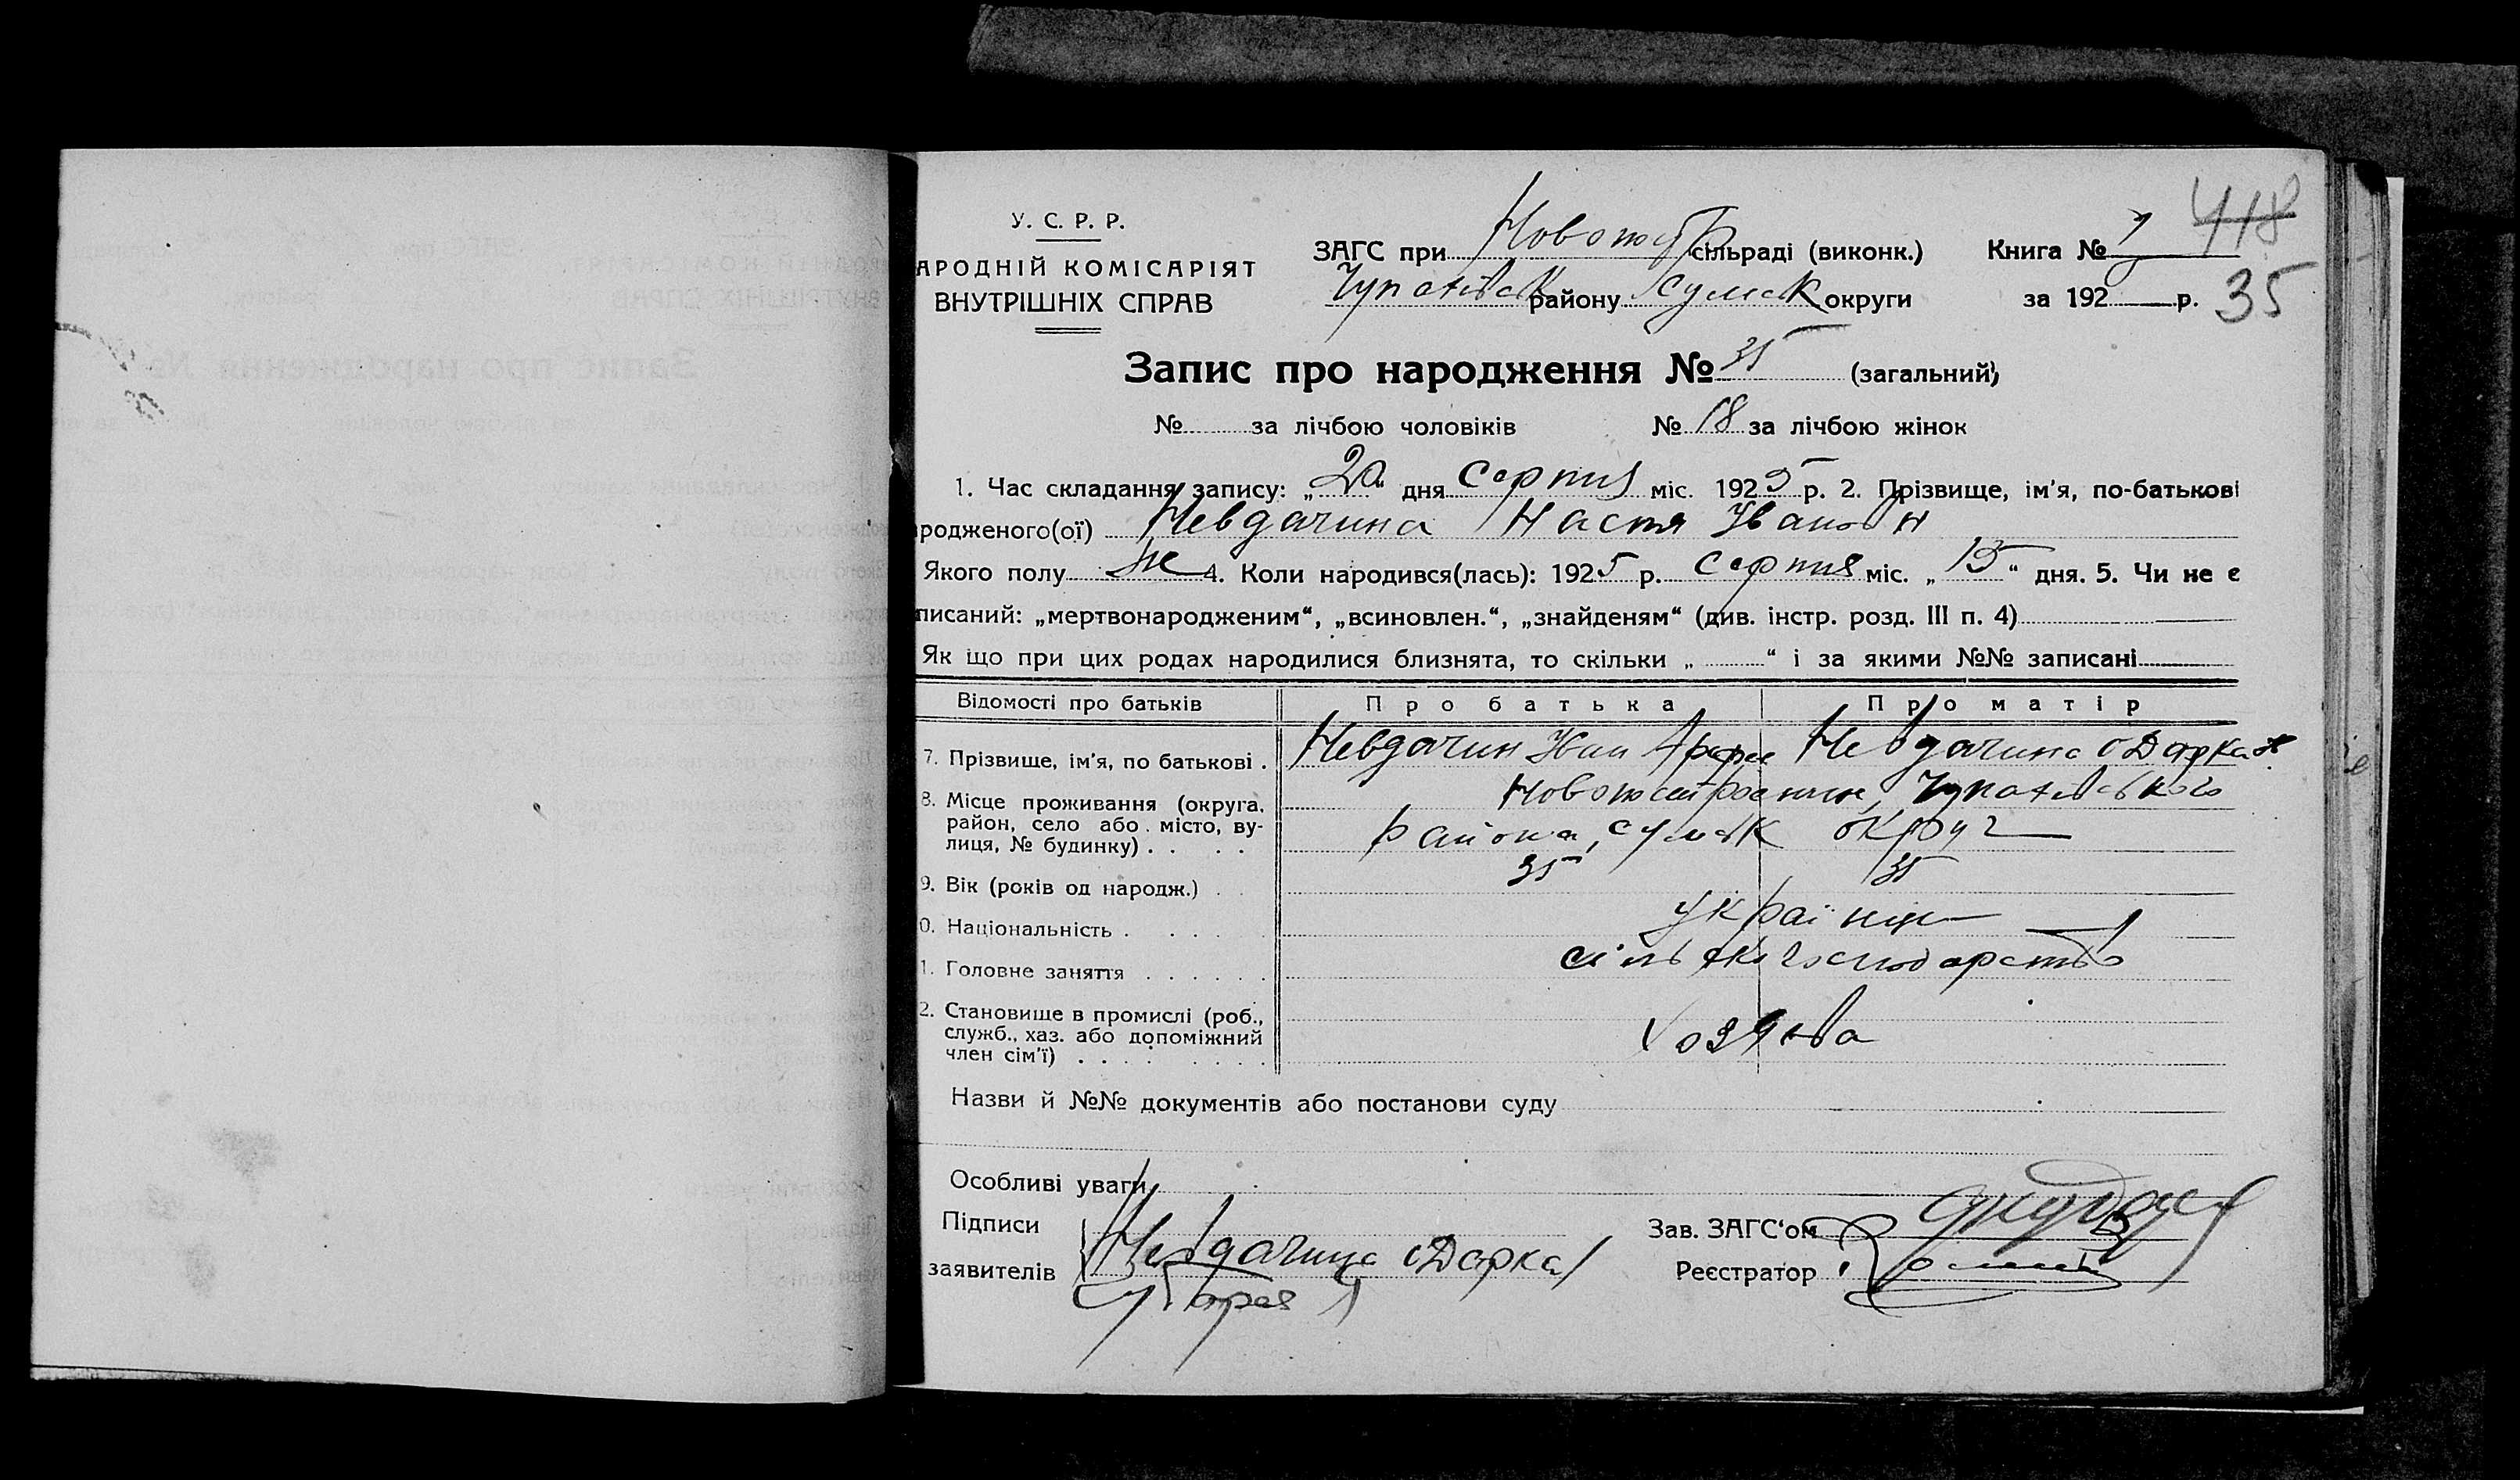 У. С. Р. Р.
АРОДНІЙ КОМІСАРІЯТ
ВНУТРІШНІХ СПРАВ
ЗАГС при сільраді (виконк.)
району Сумськ округи
Книга № 1
418
за 192 р. 35
Запис про народження № 35 (загальний)
№ за лічбою чоловіків № 18 за лічбою жінок
1. Час складання запису: „20“ дня Серпня міс. 1925 р. 2. Прізвище, ім'я, по-батькові
родженого(ої) Невдачина Настя Ивановн
Якого полу Ж 4. Коли народився(лась): 1925 р. Серпня міс. „15“ дня. 5. Чи не є
писаний: „мертвонародженим“, „всиновлен.“, „знайденям“ (див. інстр. розд. III п. 4)
Як що при цих родах народилися близнята, то скільки „ “ і за якими №№ записані
Відомості про батьків Про батька Про матір
7. Прізвище, ім'я, по батькові . Невдачин Иван Невдачина Одарка
8. Місце проживання (округа, район, село або місто, вулиця, № будинку) . . . .
района, Сумськ округ
9. Вік (років од народж.) . . 35 35
0. Національність . . . . Україн
1. Головне заняття . . . . . . сільське господарство
2. Становище в промислі (роб., служб., хаз. або допоміжний член сім'ї) . . . . . . . . Хозяєва
Назви й №№ документів або постанови суду
Особливі уваги
Підписи
заявителів Невдачина Одарка
Зав. ЗАГС'ом
Реєстратор